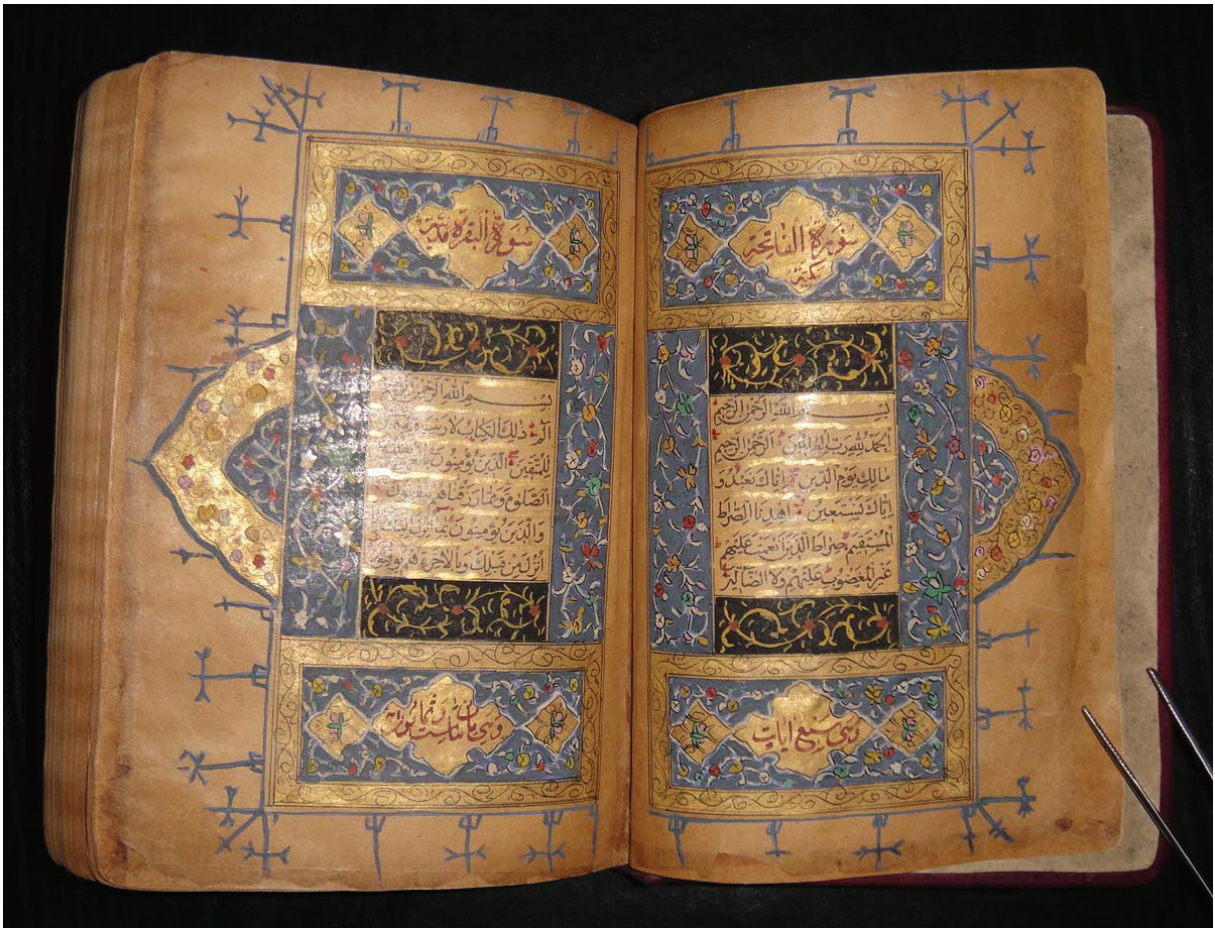 سورة الفاتحة
مكية
بسم الله الرحمن الرحيم
الحمد لله رب العالمين الرحمن الرحيم
مالك يوم الدين اياك نعبد و
اياك نستعين اهدنا الصراط
المستقيم صراط الذين انعمت عليهم
غير المغضوب عليهم ولا الضالين
وهى سبع ايات
سورة البقرة مدنية
بسم الله الرحمن الرحيم
الم ذلك الكتاب لا ريب فيه هدى
للمتقين الذين يؤمنون بالغيب ويقيمون
الصلوة ومما رزقناهم ينفقون
والذين يؤمنون بما انزل اليك وما
انزل من قبلك وبالاخرة هم يوقنون
وهى مائتان وست وثمانون اية